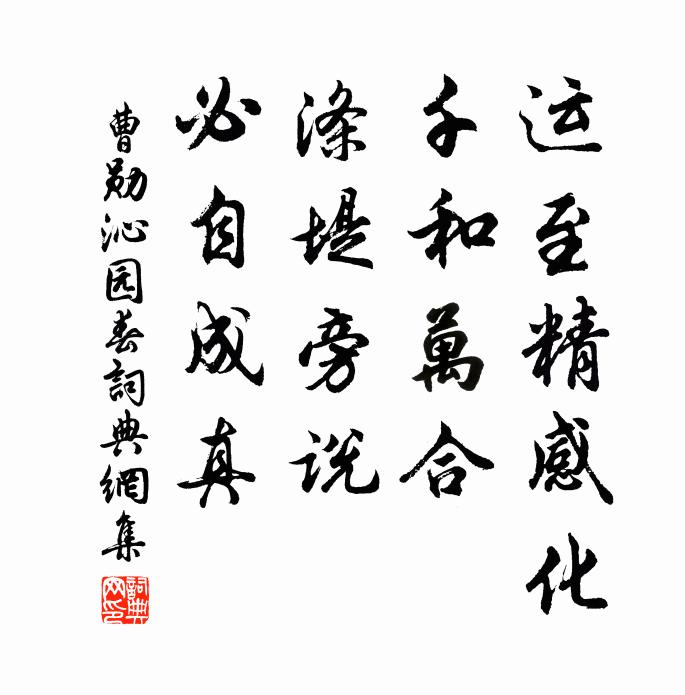 运至精感化
千和萬合
涤堤旁说
必自成真
曹勋沁园春詞典網集
詞典网印